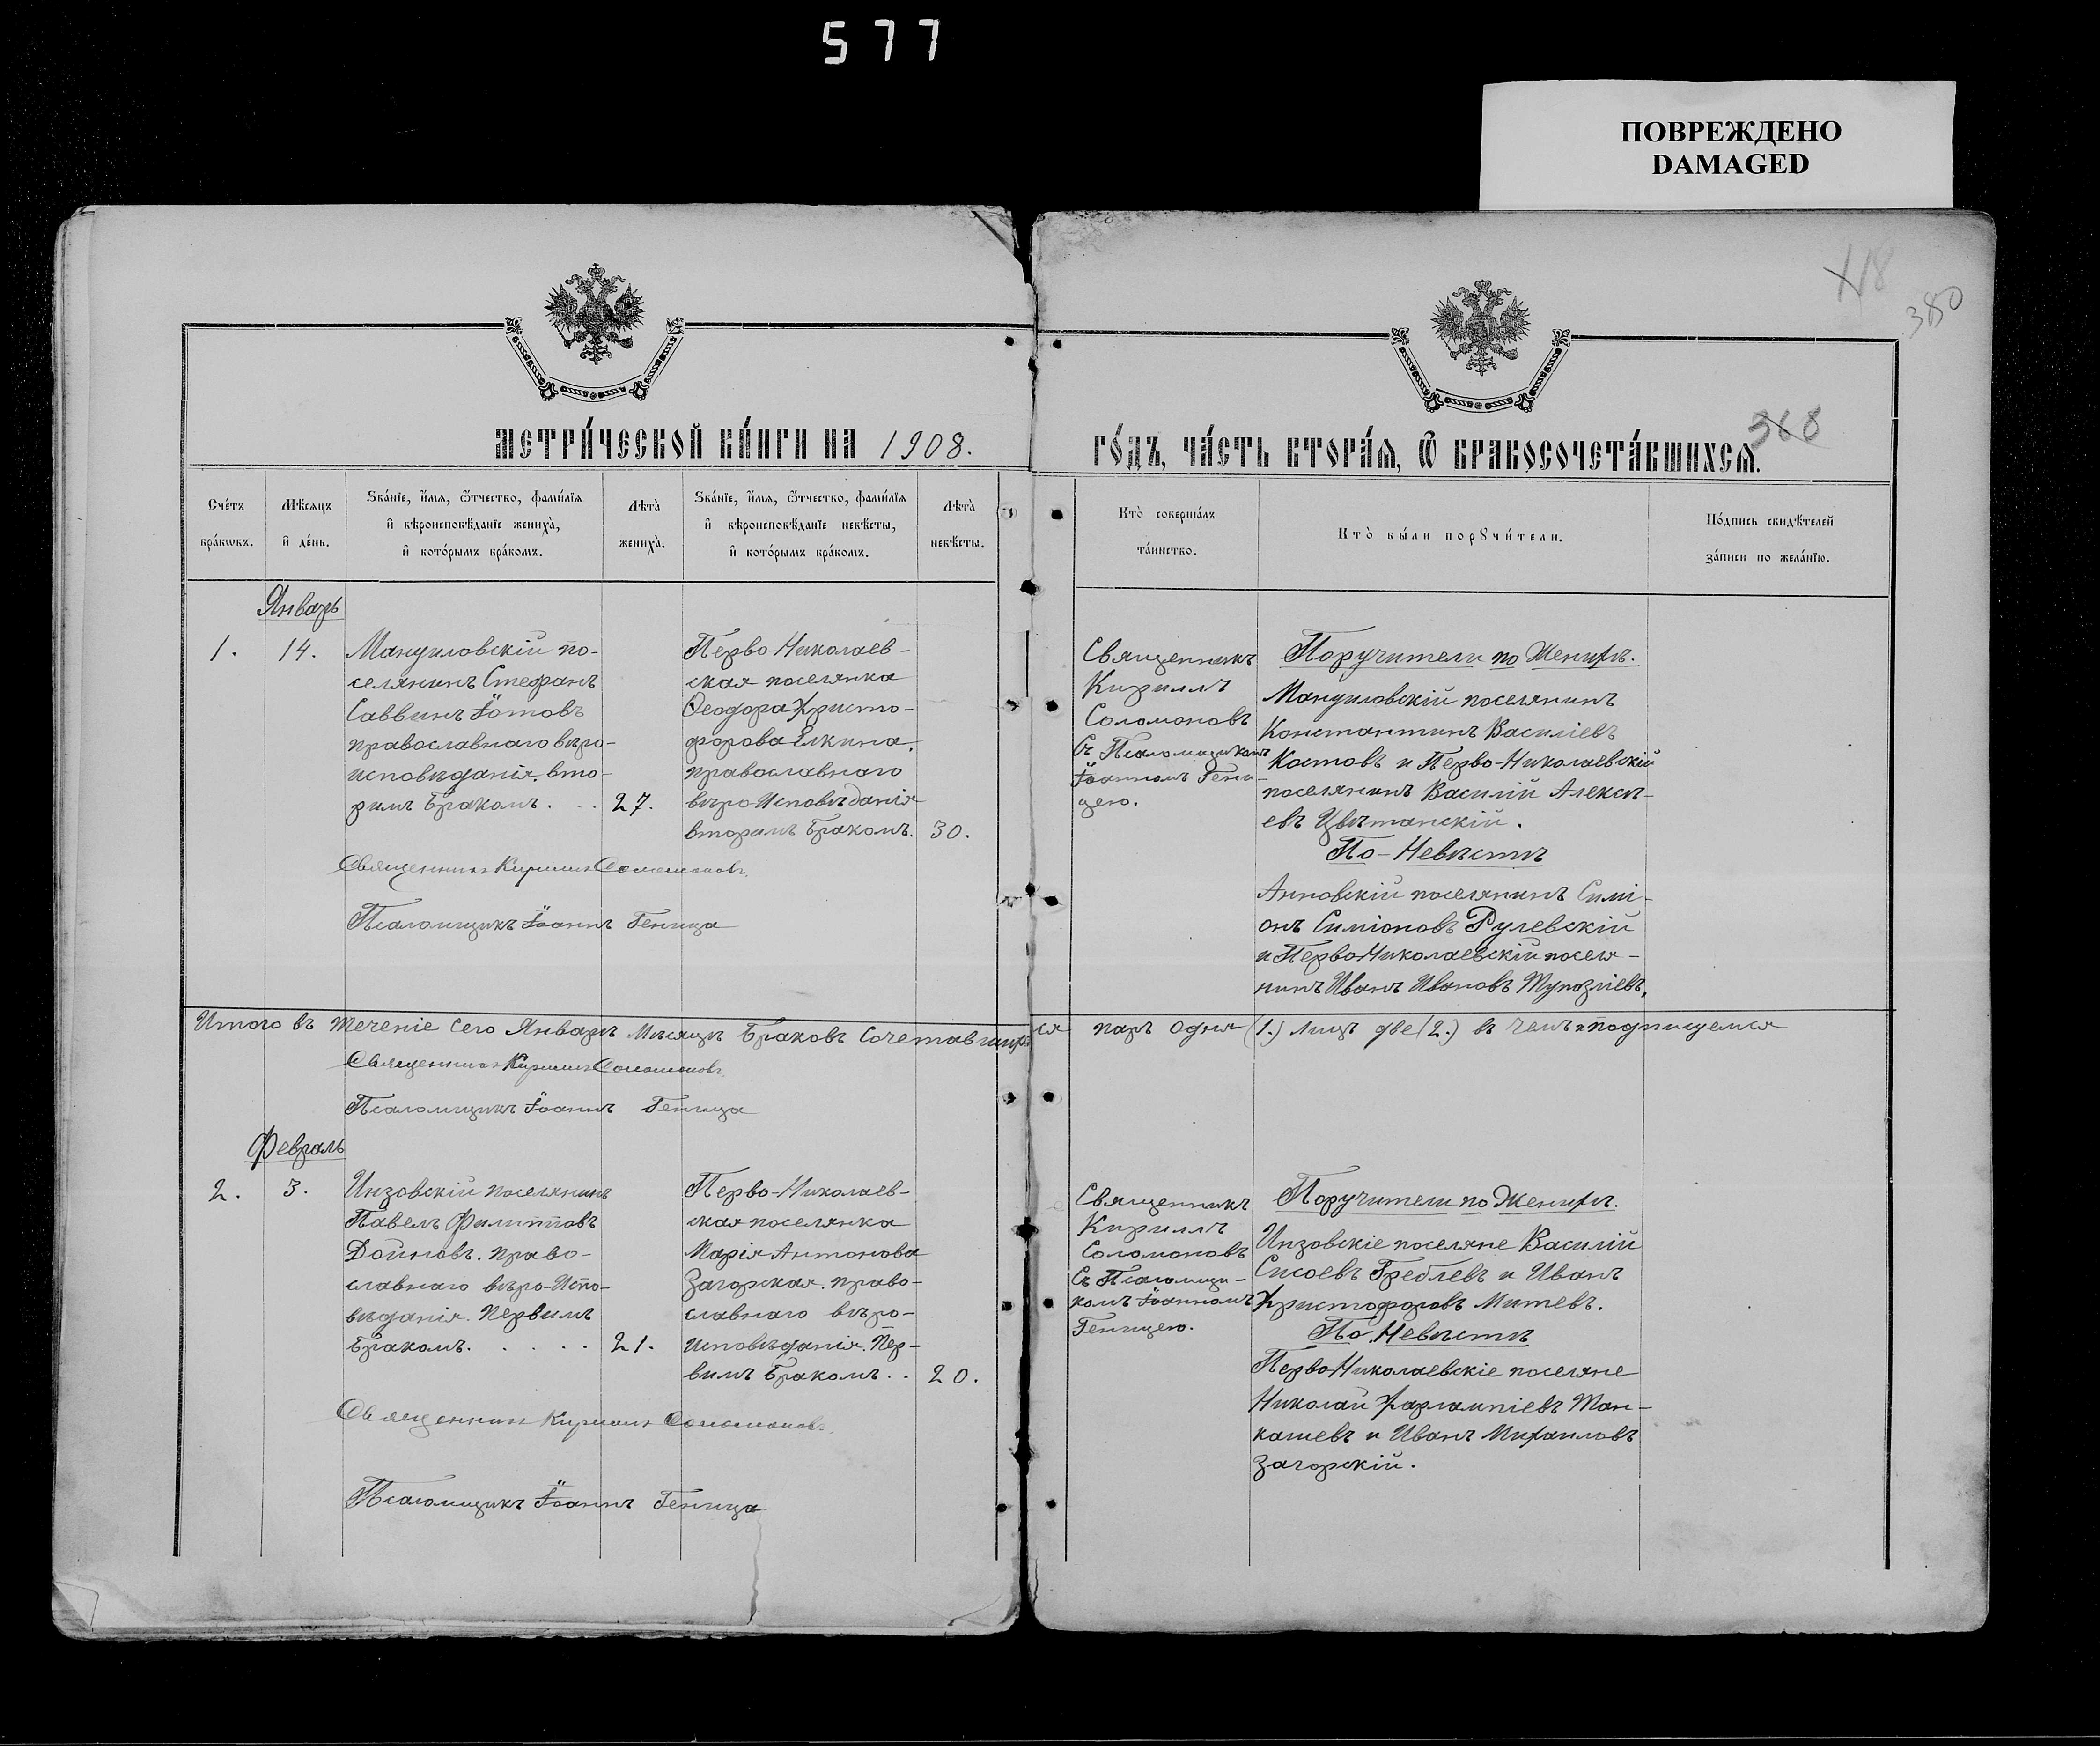 577
ПОВРЕЖДЕНО
DAMAGED
380
368
МЕТРИ́ЧЕСКОЙ КНИ́ГИ НА 1908.
ГО́ДЪ, ЧА́СТЬ ВТОРА́Я, Ѿ БРАКОСОЧЕТА́ВШИХСЯ.
Сче́тъ
бра́кѡвъ.
Мѣсяцъ
и҆ де́нь.
Ѕва́нїе, и҆́мя, ѻ҆́тчество, фами́лїя
и҆ вѣроисповѣ́данїе жениха̀,
и҆ кото́рымъ бра́комъ.
Лѣта̀
жениха̀.
Ѕва́нїе, и҆́мя, ѻ҆́тчество, фами́лїя
и҆ вѣроисповѣ́данїе невѣ́сты,
и҆ кото́рымъ бра́комъ.
Лѣта̀
невѣ́сты.
Кто̀ соверша́лъ
та́инство.
Кто̀ бы́ли порꙋчи́тели.
По́дпись свидѣ́телей
за́писи по жела́нїю.
Январь
1.
14.
Мануиловскій по-
селянинъ Стефанъ
Саввинъ Іотовъ
православнаго вѣро-
исповѣданія. вто-
римъ Бракомъ. . .
27.
Перво-Николаев-
ская поселянка
Ѳеодора Христо-
форова Елкина,
православнаго
вѣро-Исповѣданія
вторимъ Бракомъ.
30.
Священникъ
Кириллъ
Соломоновъ
Съ Псаломщикомъ
Іоанномъ Гени-
цею.
Поручители по Женихѣ.
Мануиловскій поселянинъ
Константинъ Василіевъ
Костовъ и Перво-Николаевскій
поселянинъ Василій Алексѣ-
евъ Цвѣтанскій.
По-Невѣстѣ
Анновскій поселянинъ Симі-
онъ Симіоновъ Рулевскій
и ПервоНиколаевскій поселя-
нинъ Иванъ Ивановъ
Священникъ Кириллъ Соломоновъ
Псаломщикъ Іоаннъ Геница
Итого въ теченіе сего Январѣ Мѣсяцѣ Браковъ Сочетавшихся паръ Одна (1.) лицъ две (2.) въ чемъ и подписуемся
Священникъ Кириллъ Соломоновъ
Псаломщикъ Іоаннъ Геница
Февраль
2.
3.
Инзовскій поселянинъ
Павелъ Филипповъ
Дойновъ. право-
славнаго вѣро-Испо-
вѣданія. Первимъ
Бракомъ. . . . . .
21.
Перво-Николаев-
ская поселянка
Марія Антонова
Загорская. право-
славнаго вѣро-
исповѣданія. Пер-
вимъ Бракомъ. .
20.
Священникъ
Кириллъ
Соломоновъ
Съ Псаломщи-
комъ Іоанномъ
Геницею.
Поручители по Женихѣ.
Инзовскіе поселяне Василій
Сисоевъ Греблевъ и Иванъ
Христофоровъ Митевъ.
По Невѣстѣ
ПервоНиколаевскіе поселяне
Николай Харлампіевъ Ман-
кашевъ и Иванъ Михаиловъ
Загорскій.
Священникъ Кириллъ Соломоновъ
Псаломщикъ Іоаннъ Геница